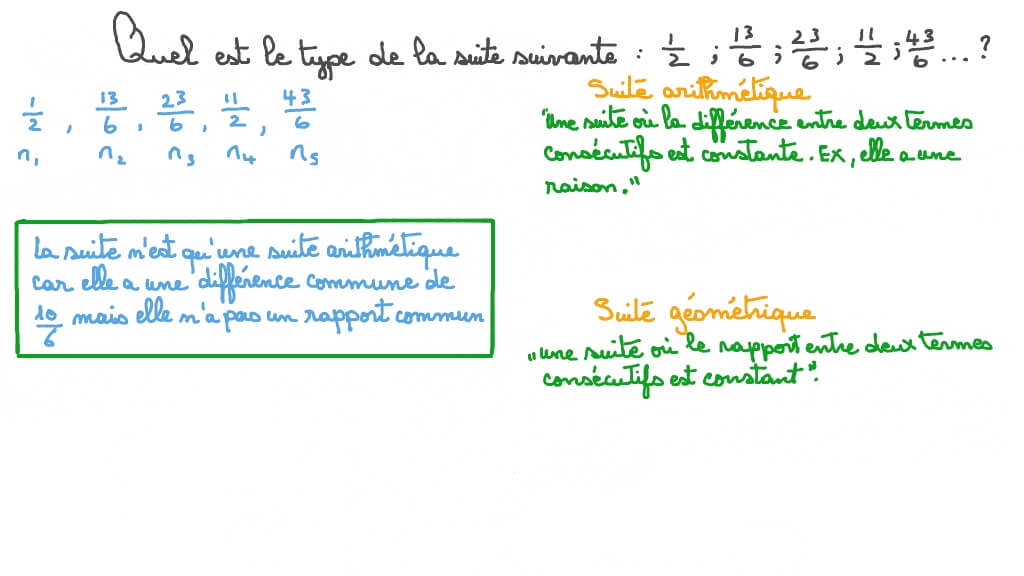 Quel est le type de la suite suivante : 1/2 ; 13/6 ; 23/6 ; 11/2 ; 43/6 ... ?
1/2 , 13/6 , 23/6 , 11/2 , 43/6
n₁ n₂ n₃ n₄ n₅
Suite arithmétique
"une suite où la différence entre deux termes
consécutifs est constante. Ex, elle a une
raison."
La suite n'est qu'une suite arithmétique
car elle a une différence commune de
10/6 mais elle n'a pas un rapport commun
Suite géométrique
"une suite où le rapport entre deux termes
consécutifs est constant".